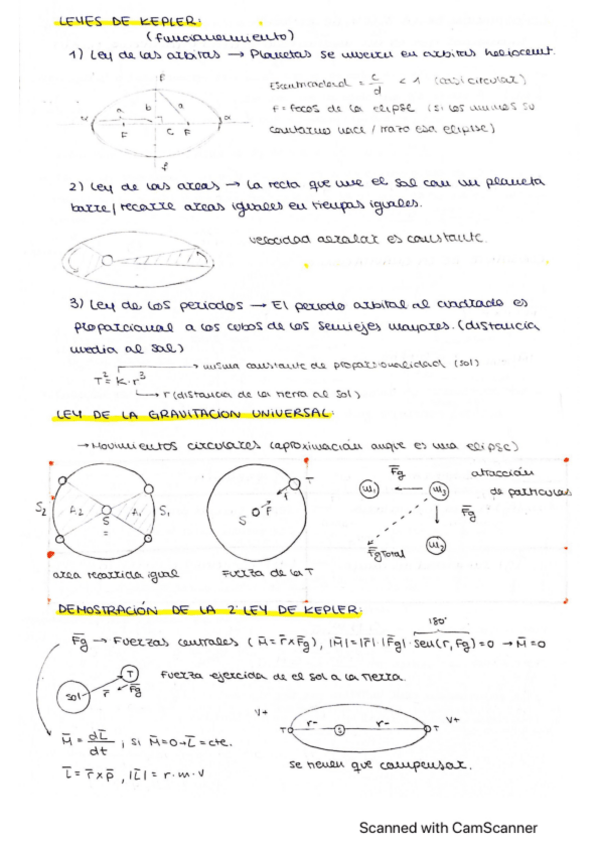 LEYES DE KEPLER:
(Funcionamiento)
1) Ley de las orbitas → Planetas se mueven en orbitas heliocent.
Excentricidad = c/d < 1 (casi circular)
F = focos de la elipse (si los
contorno hace / trazo esa elipse)
a b a
F C F
2) Ley de las areas → La recta que une el sol con un planeta
barre/recorre areas iguales en tiempos iguales.
velocidad aerolar es constante.
3) Ley de los periodos → El periodo orbital al cuadrado es
proporcional a los cubos de los semiejes mayores. (distancia
media al sol)
→ misma constante de proporcionalidad (sol)
T² = k · r³
→ r (distancia de la tierra al sol)
LEY DE LA GRAVITACION UNIVERSAL:
→ Movimientos circulares (aproximación auque es una elipse)
S₂ A₂ S A₁ S₁
S F T
m₁ F̄g m₃
F̄g
F̄g Total m₂
atracción
de particulas
area recorrida igual
Fuerza de la T
DEMOSTRACIÓN DE LA 2ª LEY DE KEPLER:
180°
F̄g → Fuerzas centrales (M̄ = r̄ x F̄g), |M̄| = |r̄| · |F̄g| · sen(r, Fg) = 0 → M̄ = 0
Sol r̄ F̄g T
Fuerza ejercida de el sol a la tierra.
M̄ = dL̄/dt ; si M̄ = 0 → L̄ = cte.
L̄ = r̄ x p̄ , |L̄| = r · m · v
V+ T r- S r- T V+
se tienen que compensar.
Scanned with CamScanner